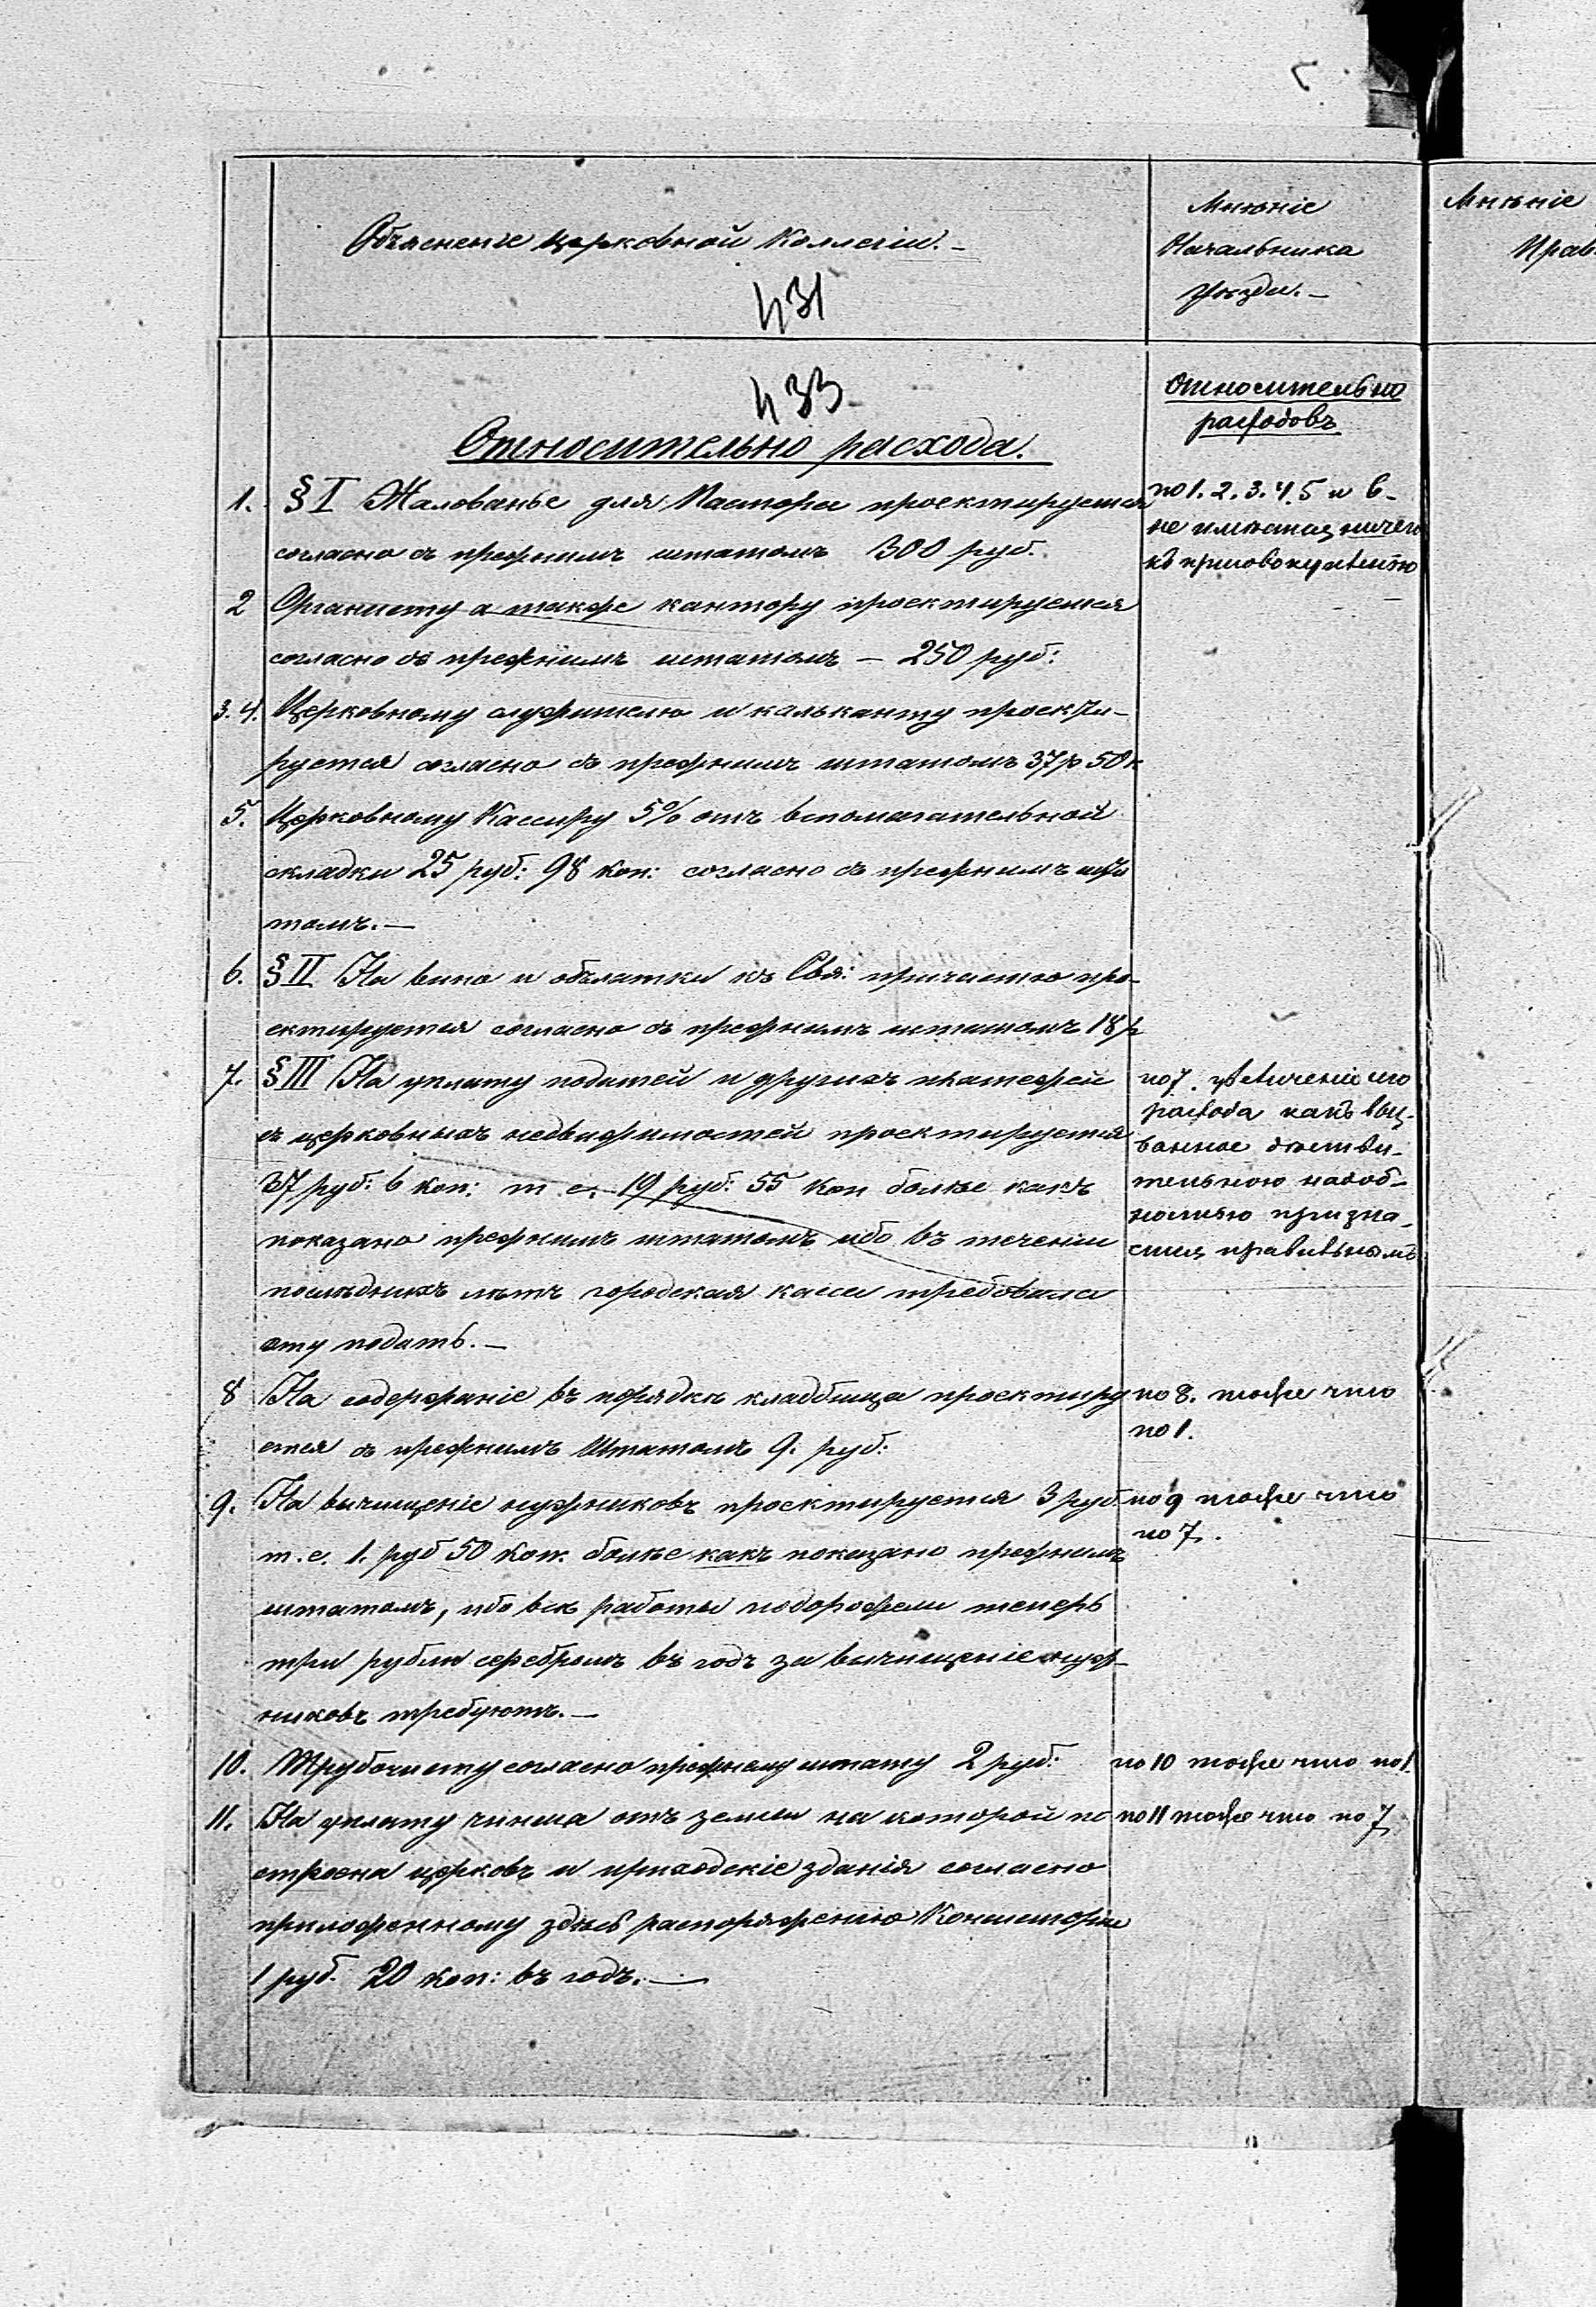 Объясненіе церковной Коллегіи. –
431
Мнѣніе
Начальника
Уѣзда. –
Мнѣніе
Прав.
433
Относительно расхода.
1. § I Жалованье для Пастора проектируется
согласно съ прежнимъ штатомъ 300 руб.
2 Органисту а также кантору проектируется
согласно съ прежнимъ штатомъ – 250 руб:
3. 4. Церковному служителю и кальканту проекти-
руется согласно съ прежнимъ штатомъ 37 р 50 к
5. Церковному Кассиру 5% отъ вспомагательной
складки 25 руб: 98 коп: согласно съ прежнимъ шта
томъ. –
6. § II На вино и облатки къ Свя: причастію про-
ектируется согласно съ прежнимъ штатомъ 18 р
7. § III На уплату податей и другихъ платежей
съ церковныхъ недвижимостей проектируется
37 руб: 6 коп: т. е. 19 руб: 55 коп болѣе какъ
показано прежнимъ штатомъ ибо въ теченіи
послѣднихъ лѣтъ городская касса требовала
эту подать. –
8 На содержаніе въ порядкѣ кладбища проектиру
ется съ прежнимъ Штатомъ 9. руб:
9. На вычищеніе нужниковъ проектируется 3 руб.
т. е. 1. руб 50 коп. болѣе какъ показано прежнимъ
штатомъ, ибо всѣ работы подорожели теперь
три рубли серебромъ въ годъ за вычищеніе нуж-
никовъ требуютъ. –
10. Трубочисту согласно прежнему штату 2 руб:
11. На уплату чинша отъ земли на которой по
строена церковь и приходскіе зданія согласно
приложенному здѣсь распоряженію Консисторіи
1 руб. 20 коп: въ годъ. –
Относительно
расходовъ
по 1. 2. 3. 4. 5 и 6 –
не имѣется ничего
къ присовокупленію
по 7. увеличеніе сего
расхода какъ выз-
ванное дѣстви-
тельною надоб-
ностью призна-
ется правильнымъ
по 8. тоже что
по 1.
по 9 тоже что
по 7.
по 10 тоже что по 1.
по 11 тоже что по 7